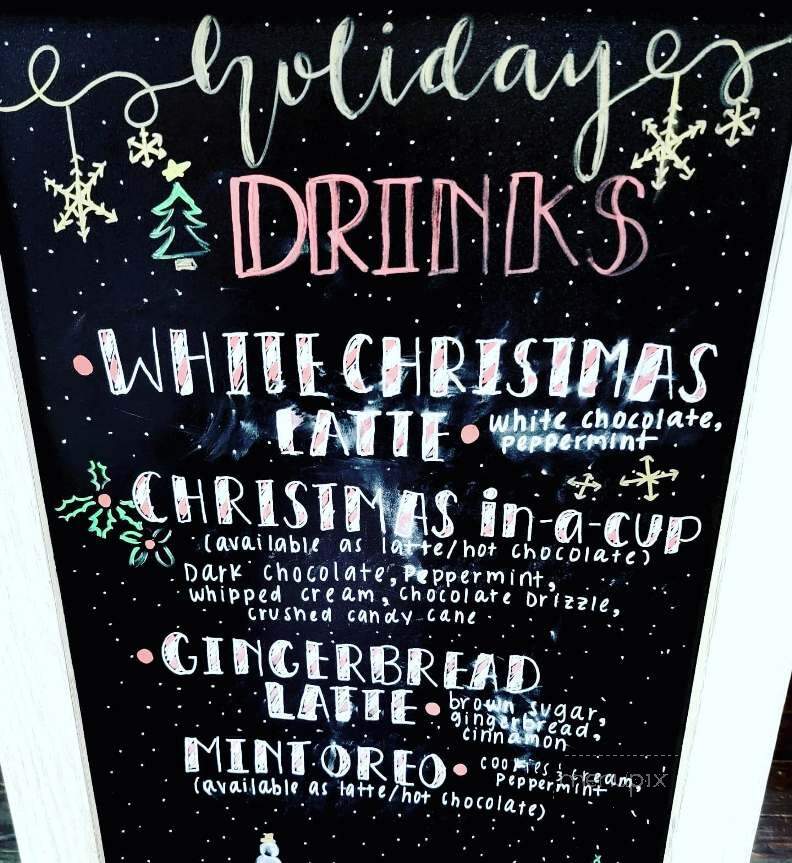 holiday
DRINKS
WHITE CHRISTMAS
LATTE • white chocolate,
peppermint
CHRISTMAS in-a-CUP
(available as latte/hot chocolate)
Dark chocolate, Peppermint,
whipped cream, chocolate Drizzle,
crushed candy cane
GINGERBREAD
LATTE • brown sugar,
gingerbread,
cinnamon
MINT OREO • cookies & cream,
Peppermint
(available as latte/hot chocolate)
menupix